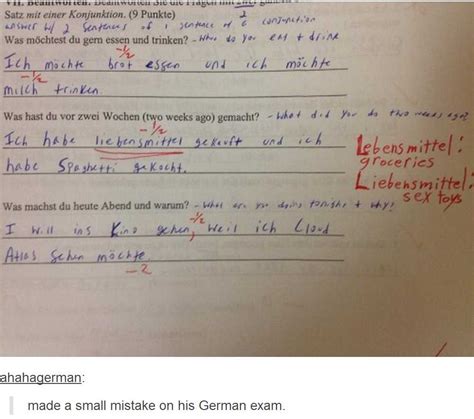 VII. Beantworten. Beantworten Sie die Fragen mit zwei
Satz mit einer Konjunktion. (9 Punkte)
answer w/ 2 sentences of 1 sentence w/ conjunction
Was möchtest du gern essen und trinken? - What do you eat + drink
Ich möchte brot essen und ich möchte
-1/2
-1/2
milch trinken.
Was hast du vor zwei Wochen (two weeks ago) gemacht? - What did you do two weeks ago?
-1/2
Ich habe liebensmittel gekauft und ich
habe Spaghetti gekocht.
Lebensmittel:
groceries
Liebensmittel:
sex toys
Was machst du heute Abend und warum? - What are you doing tonight + why?
-1/2
I will ins Kino gehen, weil ich Cloud
Atlas sehen möchte.
-2
ahahagerman:
made a small mistake on his German exam.